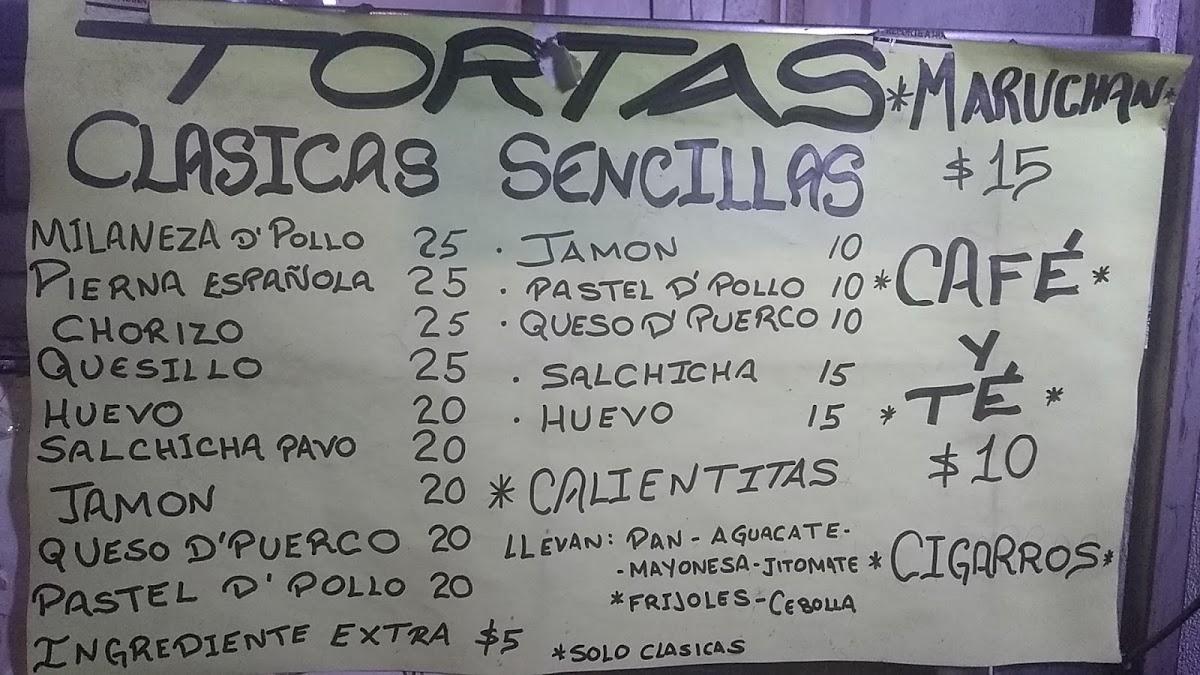 TORTAS
CLASICAS
MILANEZA D' POLLO 25
PIERNA ESPAÑOLA 25
CHORIZO 25
QUESILLO 25
HUEVO 20
SALCHICHA PAVO 20
JAMON 20
QUESO D'PUERCO 20
PASTEL D' POLLO 20
INGREDIENTE EXTRA $5
SENCILLAS
· JAMON 10
· PASTEL D' POLLO 10
· QUESO D' PUERCO 10
· SALCHICHA 15
· HUEVO 15
* CALIENTITAS
LLEVAN: PAN - AGUACATE-
- MAYONESA - JITOMATE
*FRIJOLES - CEBOLLA
*SOLO CLASICAS
*MARUCHAN*
$15
*CAFÉ*
Y
* TÉ *
$10
*CIGARROS*